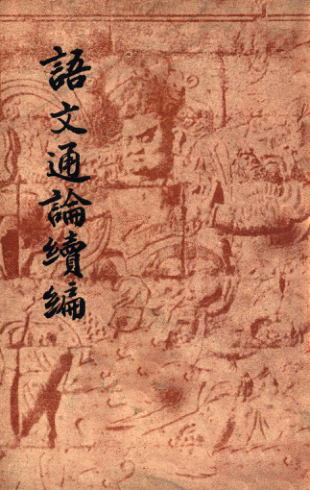 語文通論續編